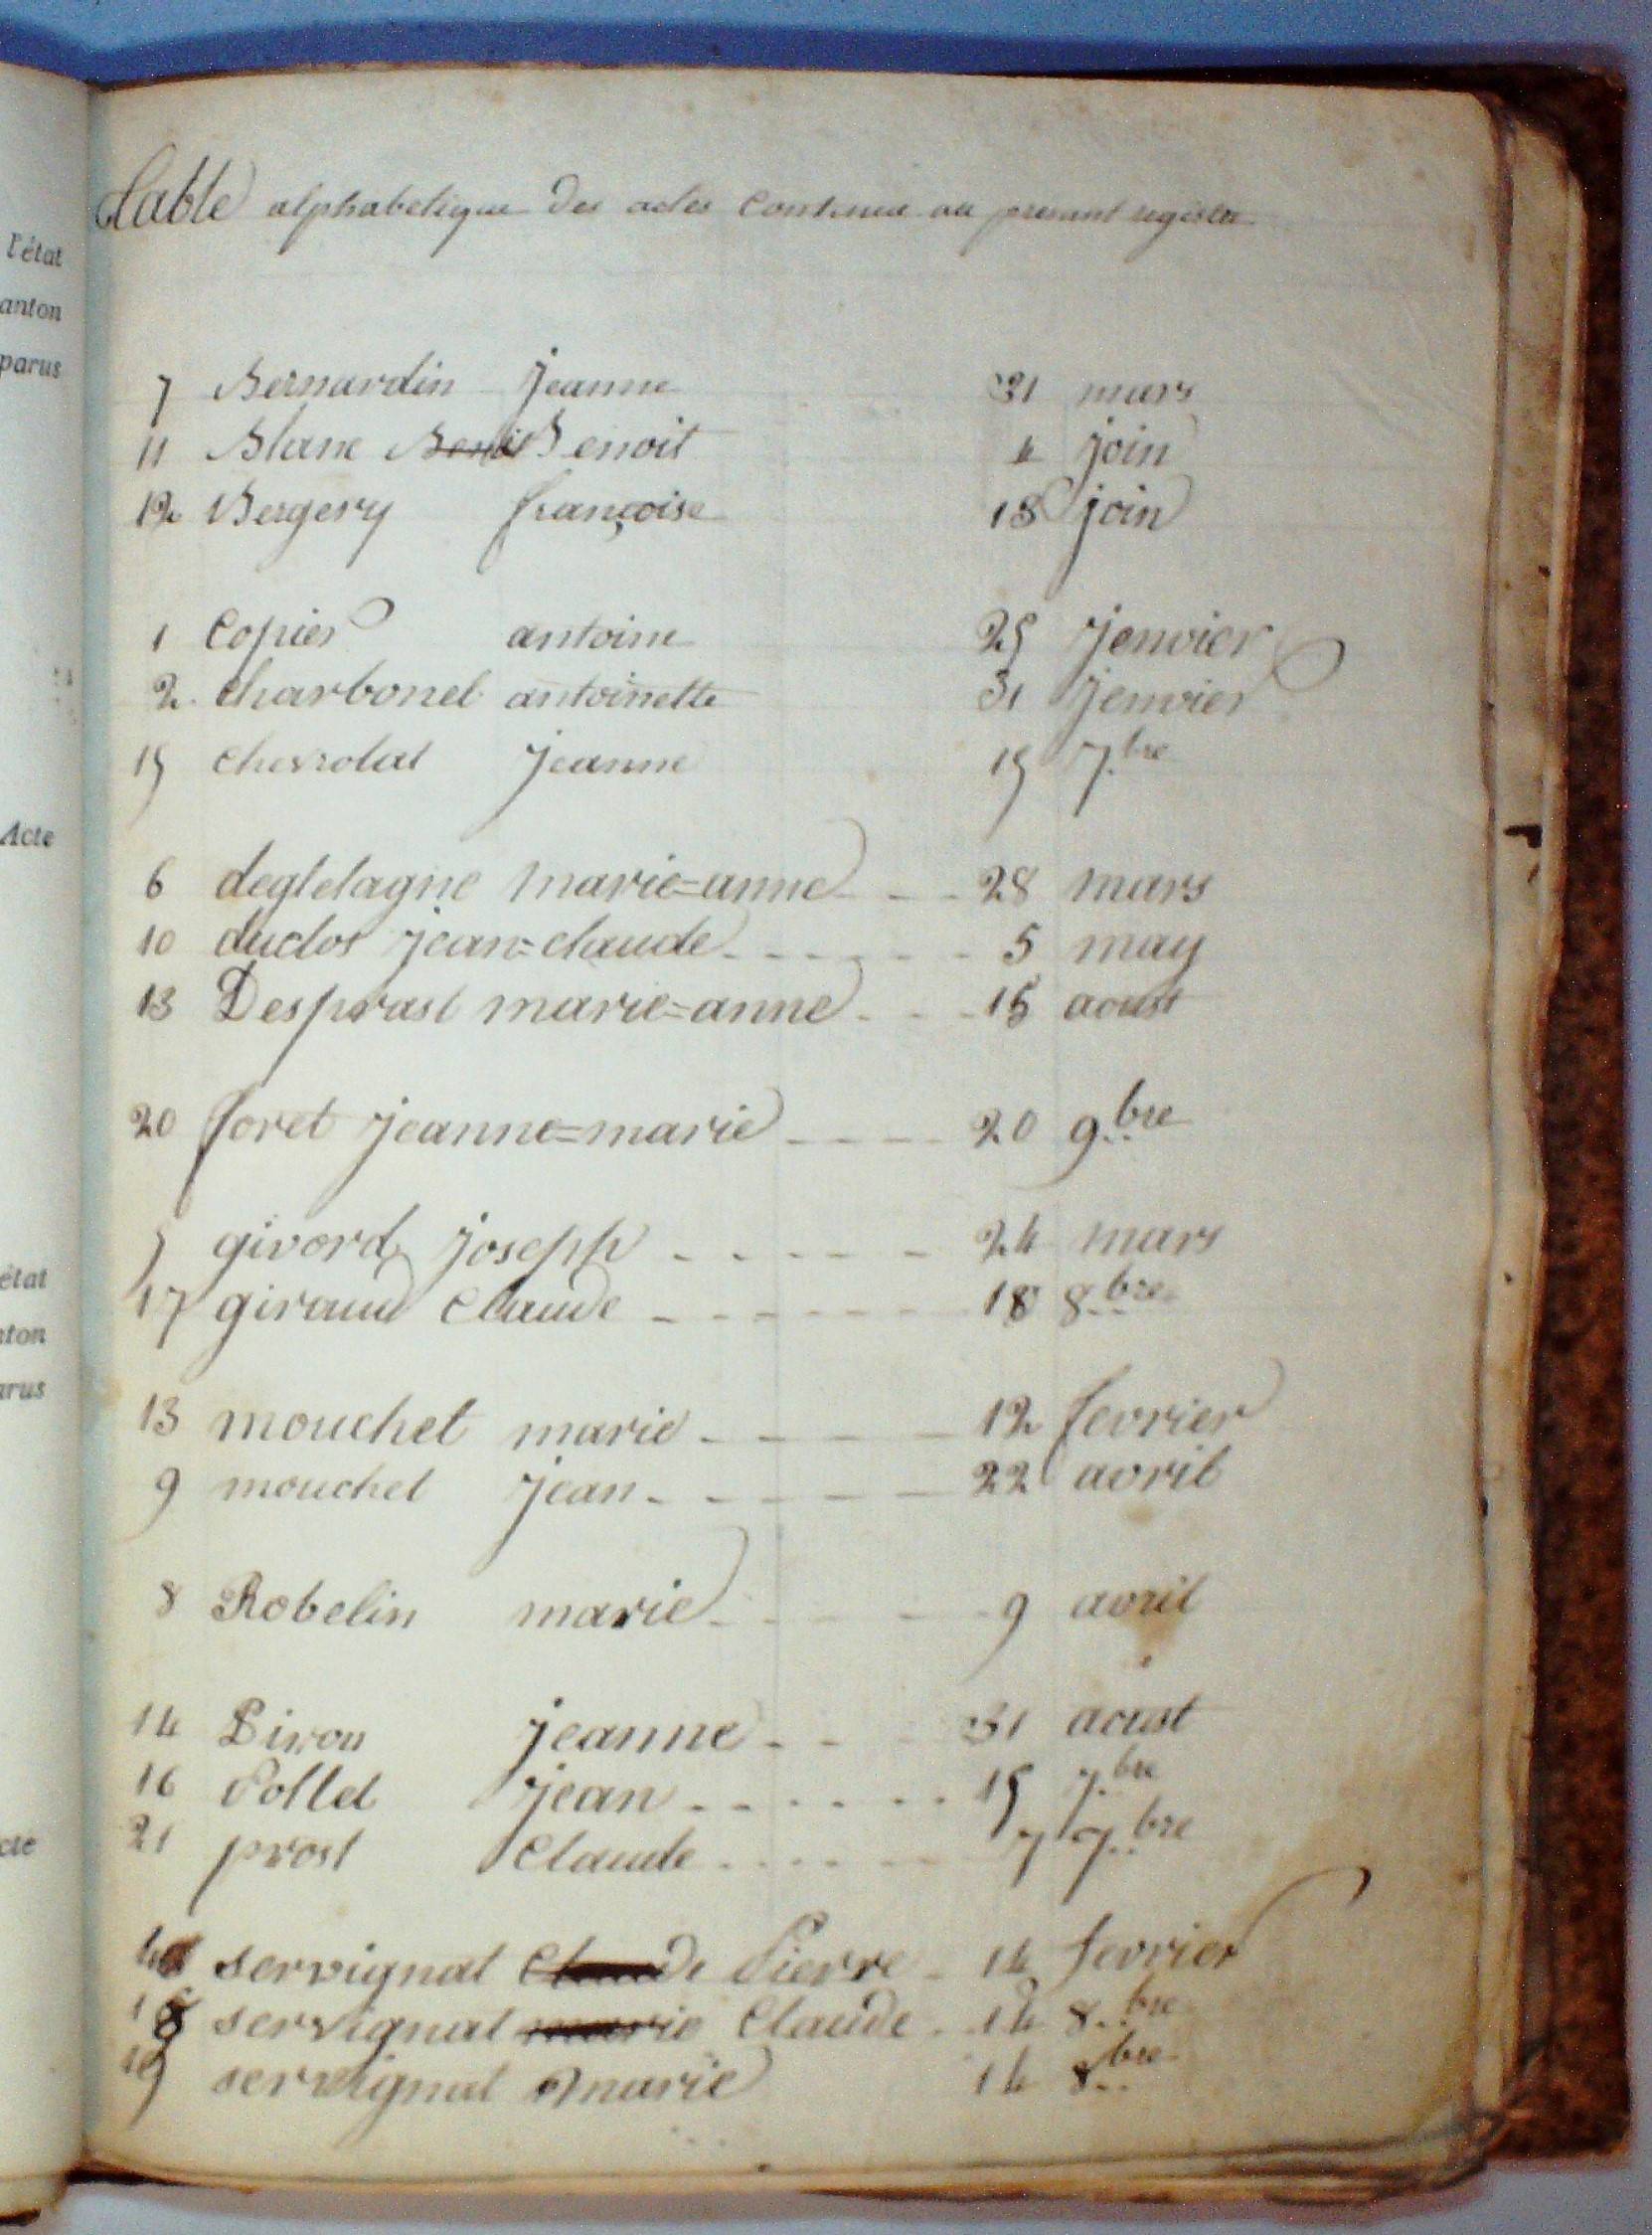 l'état
anton
parus
Acte
état
nton
arus
cte
Table alphabetique des actes contenus au present registre
7 Bernardin Jeanne 31 mars
11 Blanc Benoit 4 join
12 Bergery françoise 18 join
1 Copier antoine 25 Jenvier
2 Charbonet antoinette 31 Jenvier
15 Chevrolat Jeanne 15 7.bre
6 degletagne marie=anne 28 mars
10 duclos jean=claude 5 may
13 Desprast marie=anne 15 aoust
20 foret jeanne=marie 20 9.bre
5 givord joseph 24 mars
17 giraud Claude 18 8.bre
13 mouchet marie 12 fevrier
9 mouchet jean 22 avril
8 Robelin marie 9 avril
14 Pirou jeanne 31 aoust
16 Pollet jean 15 7.bre
21 prost Claude 7 7.bre
servignat Claude Pierre 14 fevrier
18 servignat marie Claude 14 8.bre
19 servignat marie 14 8.bre